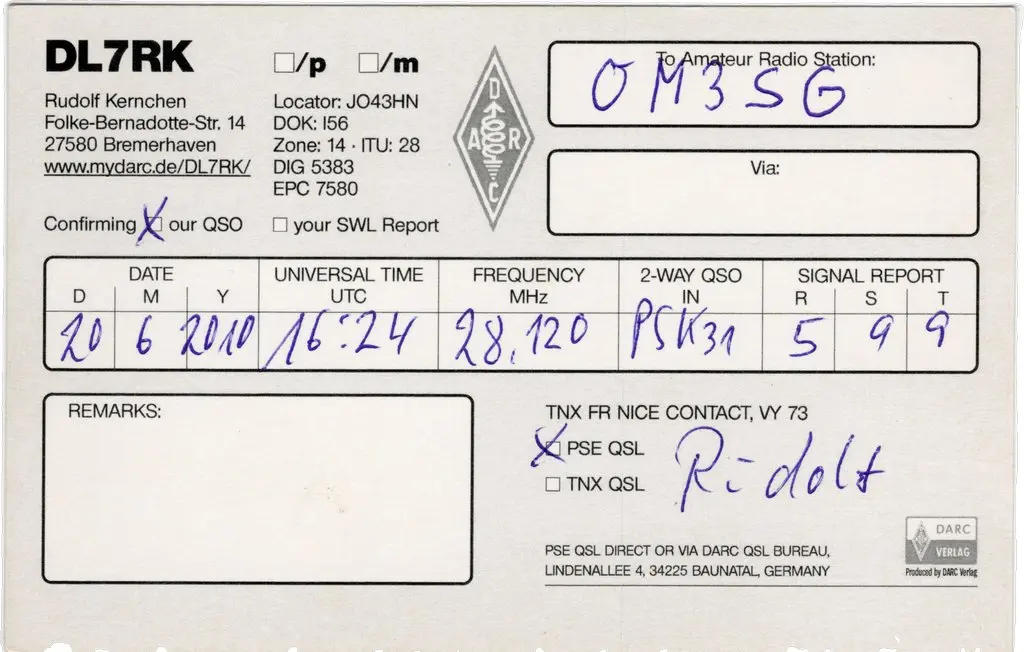 DL7RK
☐/p ☐/m
Rudolf Kernchen
Folke-Bernadotte-Str. 14
27580 Bremerhaven
www.mydarc.de/DL7RK/
Locator: JO43HN
DOK: I56
Zone: 14 · ITU: 28
DIG 5383
EPC 7580
DARC
To Amateur Radio Station:
OM3SG
Via:
Confirming ☒ our QSO ☐ your SWL Report
DATE UNIVERSAL TIME FREQUENCY 2-WAY QSO SIGNAL REPORT
D M Y UTC MHz IN R S T
20 6 2010 16:24 28.120 PSK31 5 9 9
REMARKS:
TNX FR NICE CONTACT, VY 73
☒ PSE QSL
☐ TNX QSL
Rudolf
PSE QSL DIRECT OR VIA DARC QSL BUREAU,
LINDENALLEE 4, 34225 BAUNATAL, GERMANY
DARC
VERLAG
Produced by DARC Verlag